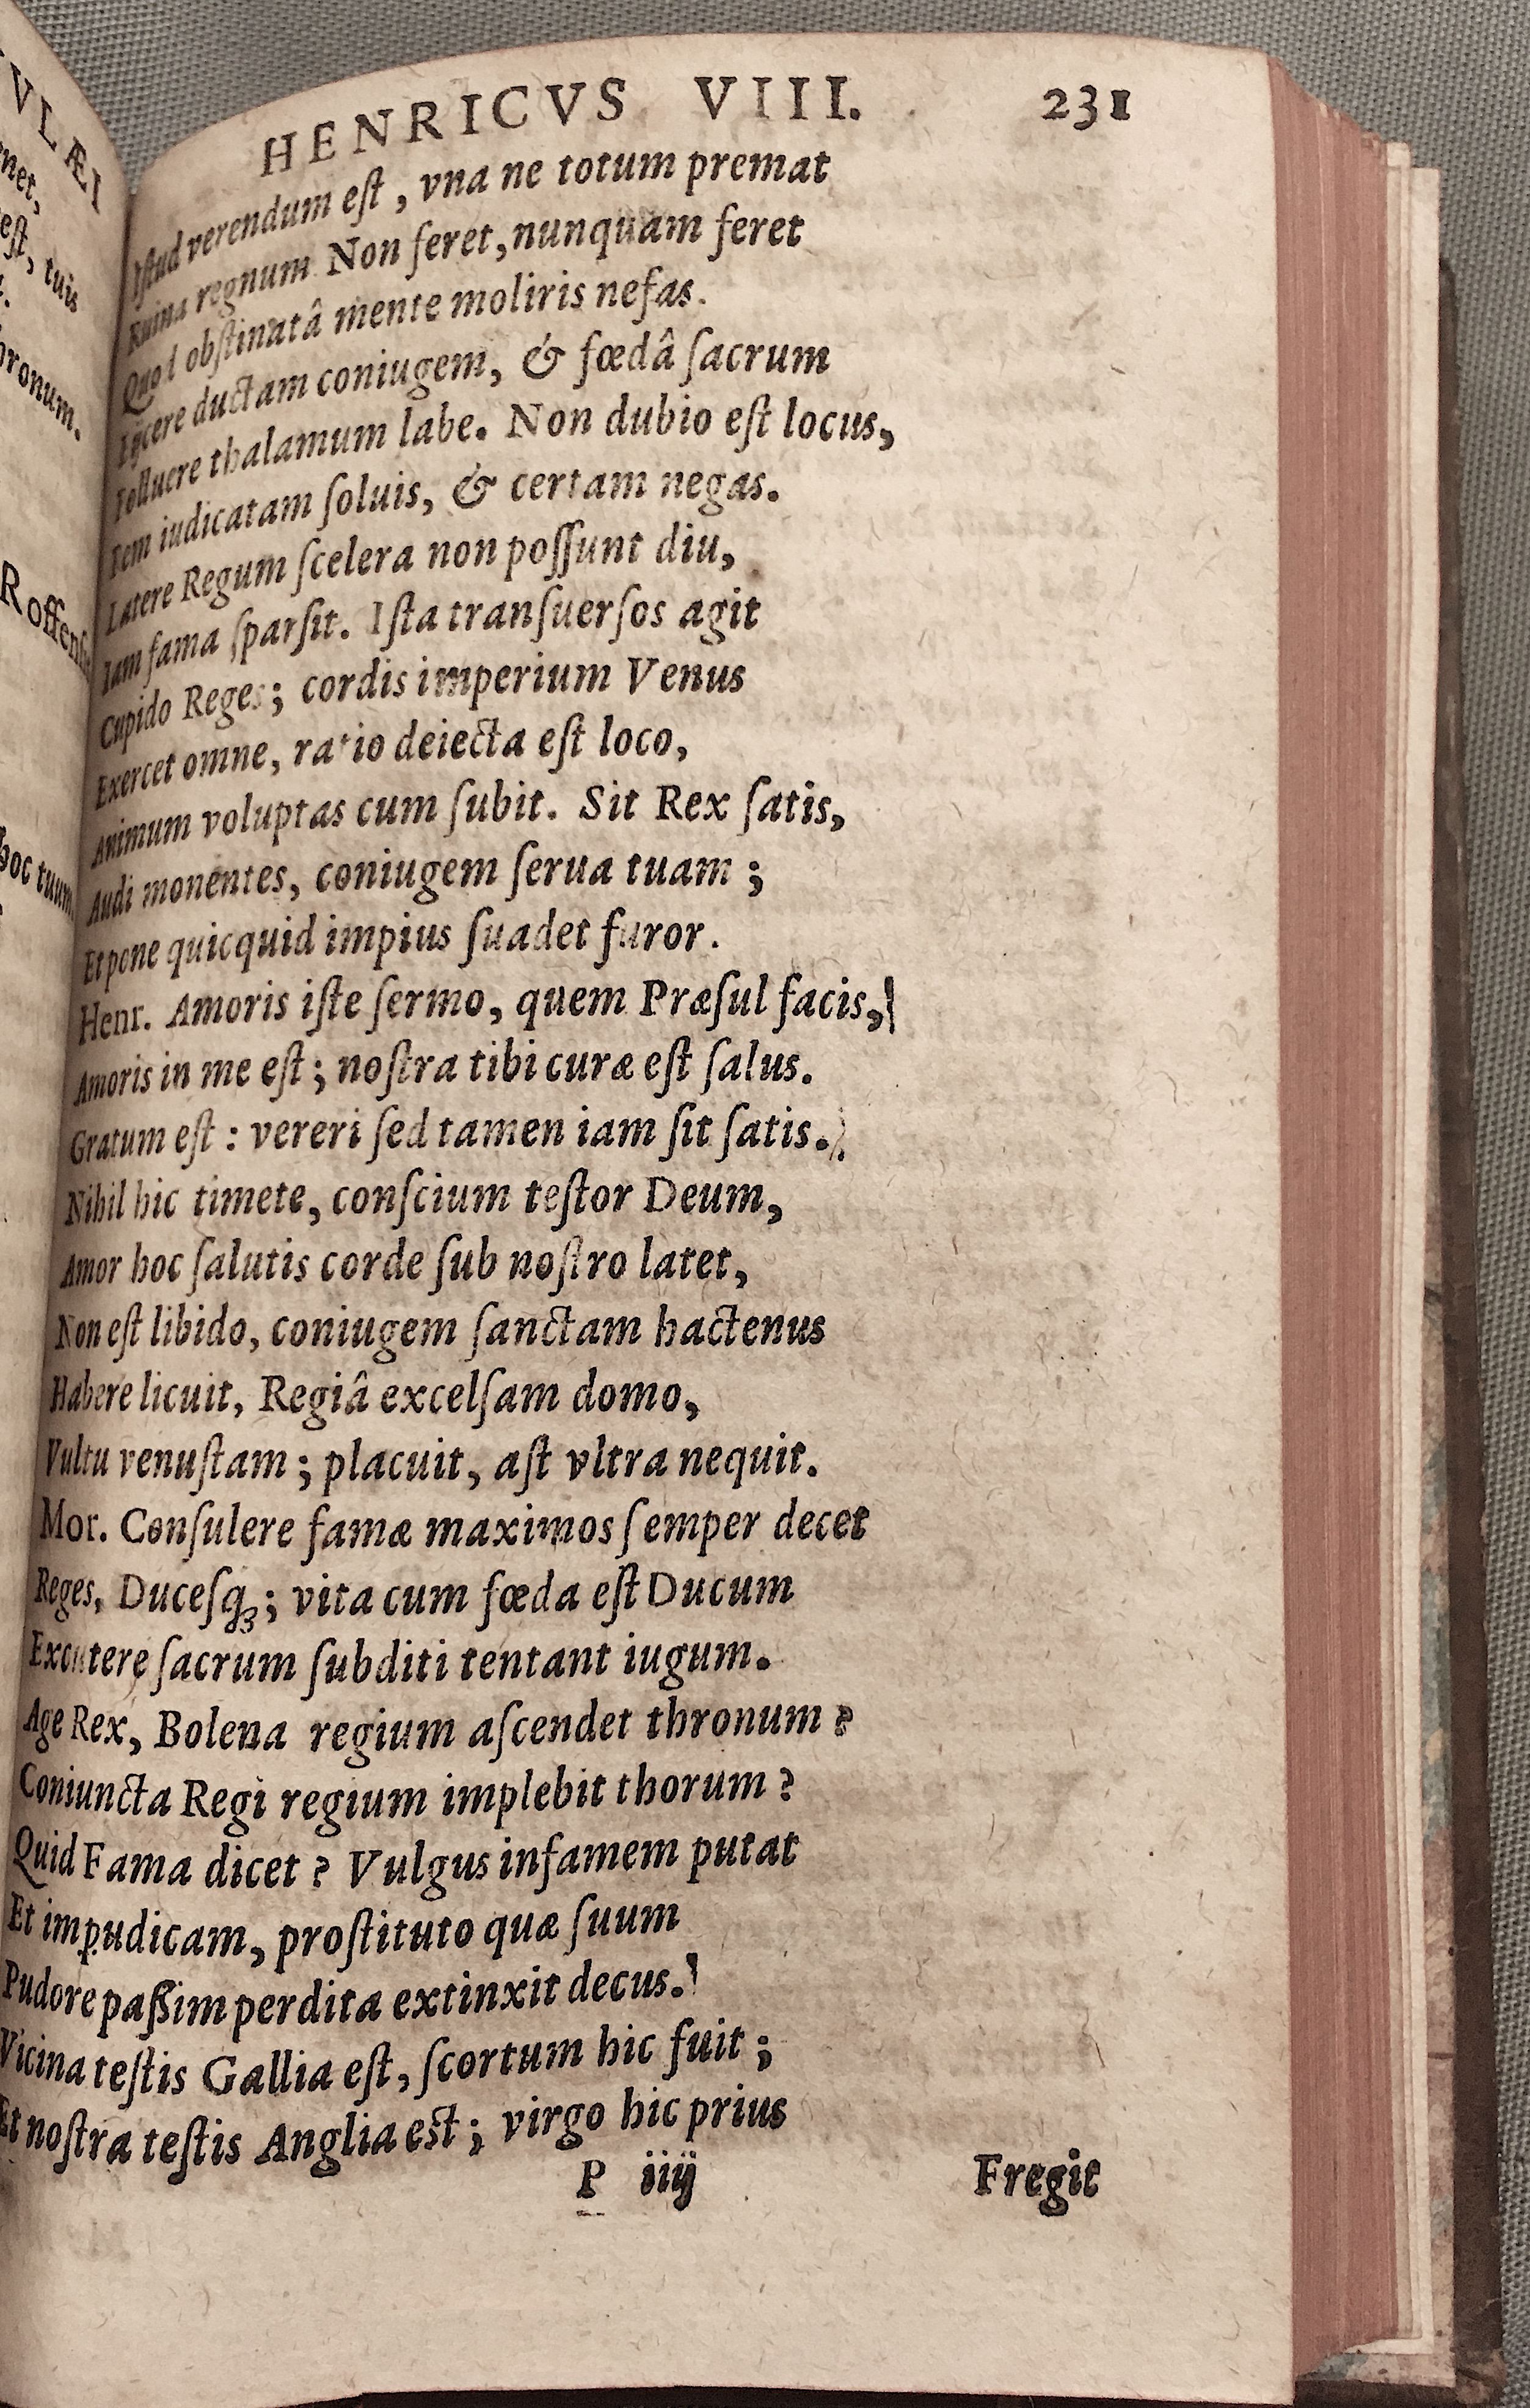 VLÆI
net,
est, tuis
ronum.
Roffens
hoc tuum
HENRICVS VIII. 231
Istud verendum est, vna ne totum premat
Ruina regnum Non feret, nunquam feret
Quod obstinatâ mente moliris nefas.
ductam coniugem, & fœdâ sacrum
thalamum labe. Non dubio est locus,
iudicatam soluis, & certam negas.
Latere Regum scelera non possunt diu,
Iam fama sparsit. Ista transuersos agit
Cupido Reges; cordis imperium Venus
Exercet omne, ratio deiecta est loco,
Animum voluptas cum subit. Sit Rex satis,
Audi monentes, coniugem serua tuam;
Et pone quicquid impius suadet furor.
Henr. Amoris iste sermo, quem Præsul facis,
Amoris in me est; nostra tibi curæ est salus.
Gratum est: vereri sed tamen iam sit satis.
Nihil hic timete, conscium testor Deum,
Amor hoc salutis corde sub nostro latet,
Non est libido, coniugem sanctam hactenus
Habere licuit, Regiâ excelsam domo,
Vultu venustam; placuit, ast vltra nequit.
Mor. Consulere famæ maximos semper decet
Reges, Ducesq;; vita cum fœda est Ducum
Excutere sacrum subditi tentant iugum.
Age Rex, Bolena regium ascendet thronum?
Coniuncta Regi regium implebit thorum?
Quid Fama dicet? Vulgus infamem putat
Et impudicam, prostituto quæ suum
Pudore passim perdita extinxit decus.
Vicina testis Gallia est, scortum hic fuit;
Et nostra testis Anglia est; virgo hic prius
P iiij Fregit